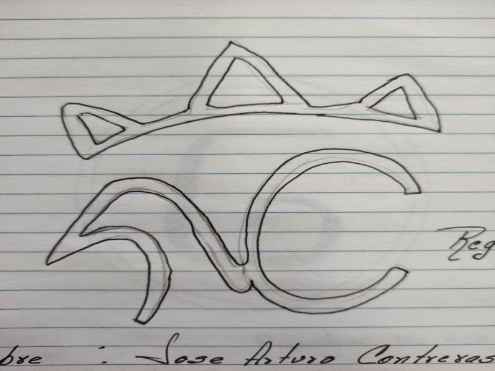 Reg
bre : Jose Arturo Contreras